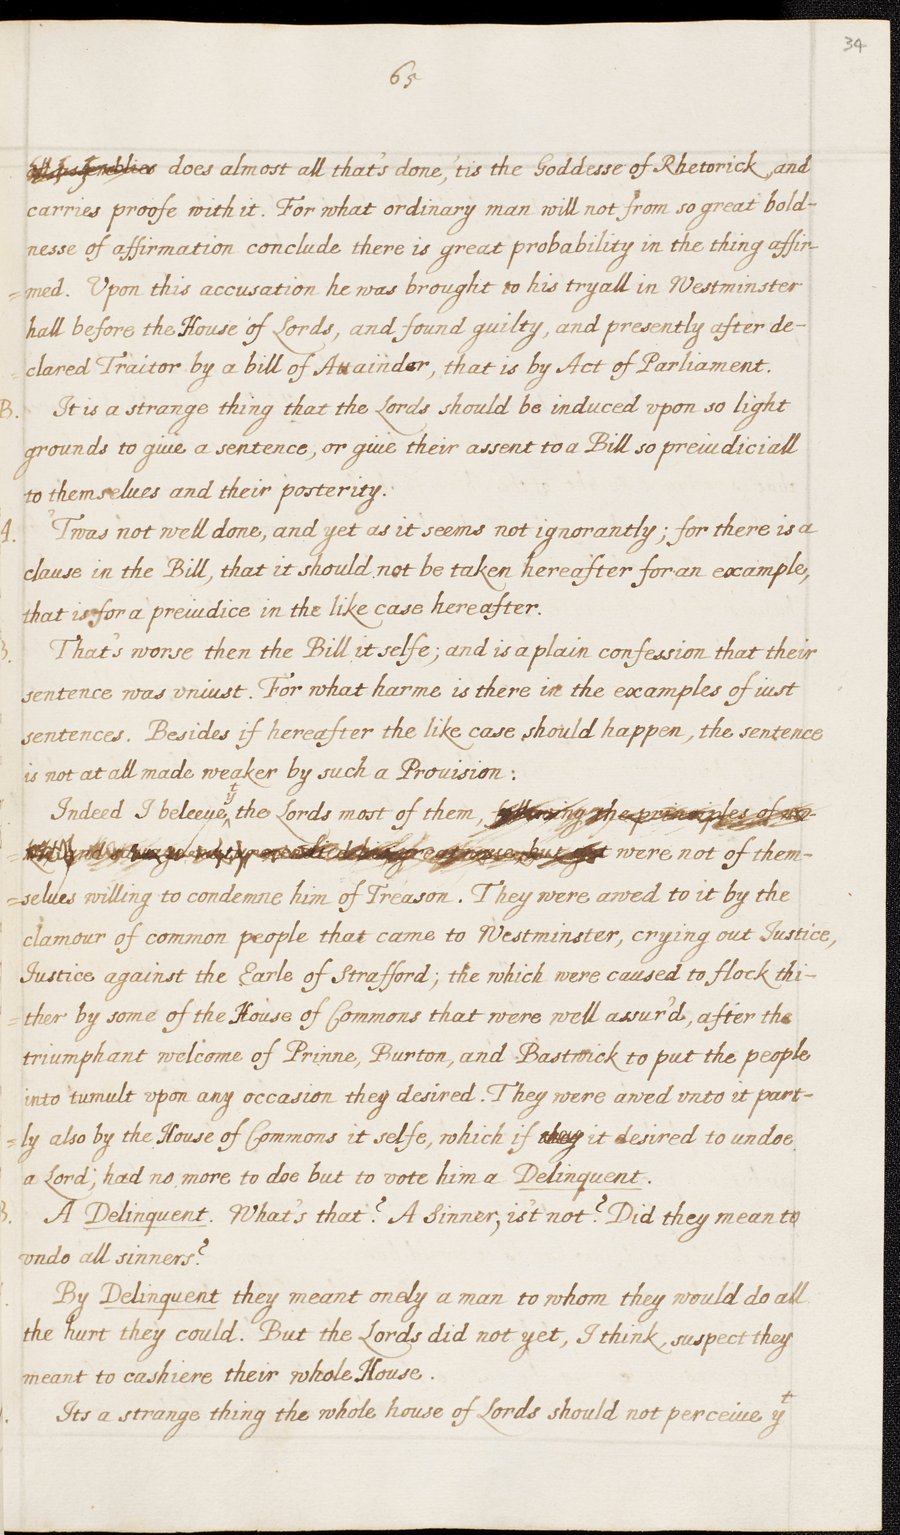 34
65
does almost all that's done, 'tis the Goddesse of Rhetorick, and
carries proofe with it. For what ordinary man will not from so great bold-
nesse of affirmation conclude there is great probability in the thing affir-
=med. Vpon this accusation he was brought to his tryall in Westminster
hall before the House of Lords, and found guilty, and presently after de-
=clared Traitor by a bill of Attainder, that is by Act of Parliament.
B. It is a strange thing that the Lords should be induced vpon so light
grounds to giue a sentence, or giue their assent to a Bill so preiudiciall
to themselues and their posterity.
A. 'Twas not well done, and yet as it seems not ignorantly; for there is a
clause in the Bill, that it should not be taken hereafter for an example,
that is for a preiudice in the like case hereafter.
B. That's worse then the Bill it selfe; and is a plain confession that their
sentence was vniust. For what harme is there in the examples of iust
sentences. Besides if hereafter the like case should happen, the sentence
is not at all made weaker by such a Prouision:
Indeed I beleeue, yt the Lords most of them, the principles of
were not of them-
=selues willing to condemne him of Treason. They were awed to it by the
clamour of common people that came to Westminster, crying out Iustice,
Iustice against the Earle of Strafford; the which were caused to flock thi-
=ther by some of the House of Commons that were well assur'd, after the
triumphant welcome of Prinne, Burton, and Bastwick to put the people
into tumult vpon any occasion they desired. They were awed vnto it part-
=ly also by the House of Commons it selfe, which if they it desired to vndoe
a Lord, had no more to doe but to vote him a Delinquent.
B. A Delinquent. What's that? A Sinner, is't not? Did they mean to
vndo all sinners?
By Delinquent they meant onely a man to whom they would do all
the hurt they could. But the Lords did not yet, I think, suspect they
meant to cashiere their whole House.
Its a strange thing the whole house of Lords should not perceiue yt